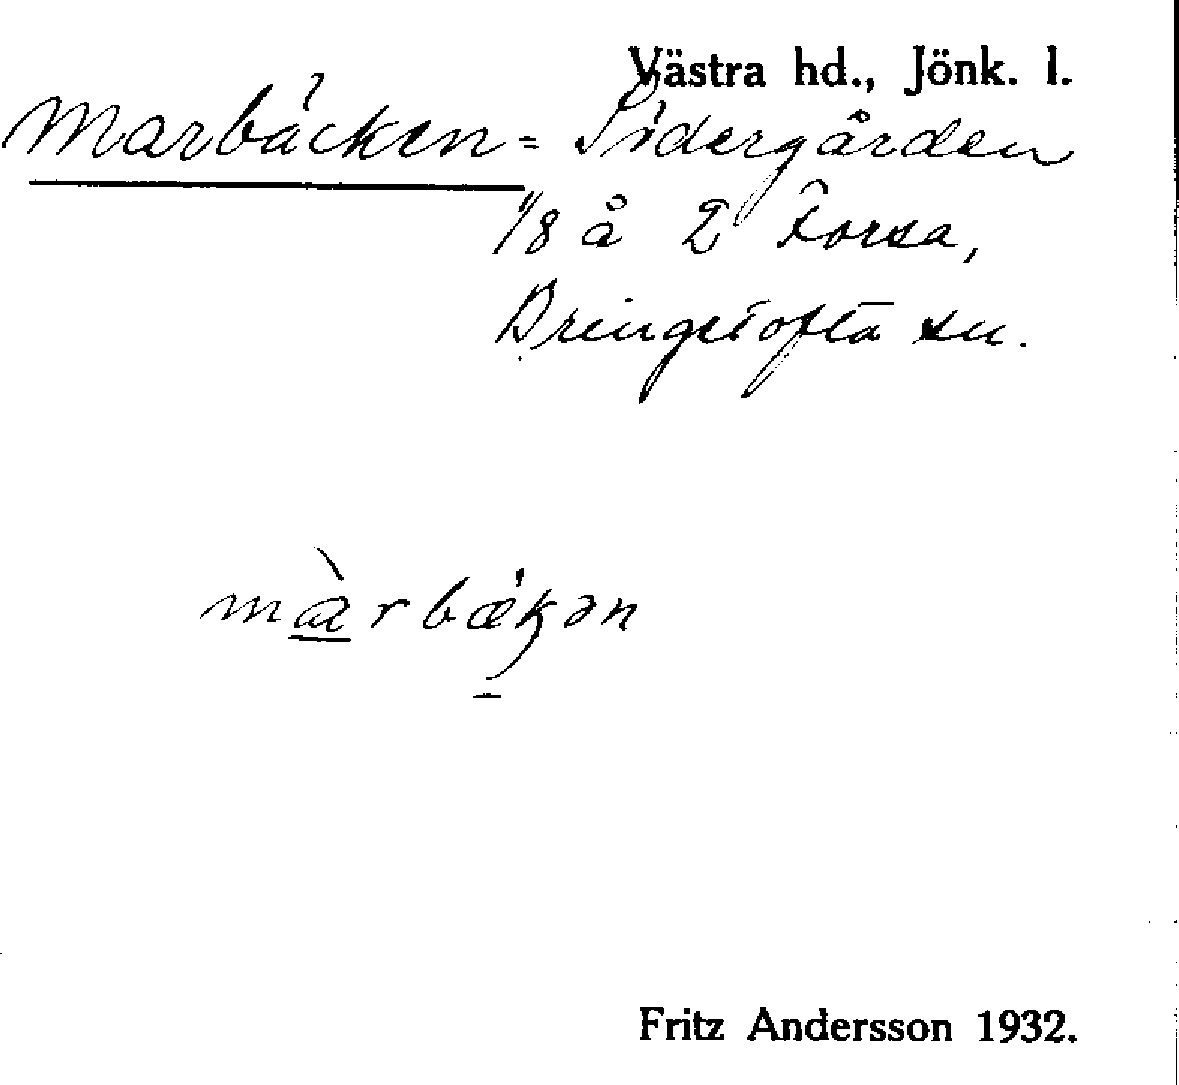 Västra hd., Jönk. l.
Marbäcken = Sidergården
1/8 å 2 Forsa,
Bringetofta sn.
màrbækən
Fritz Andersson 1932.